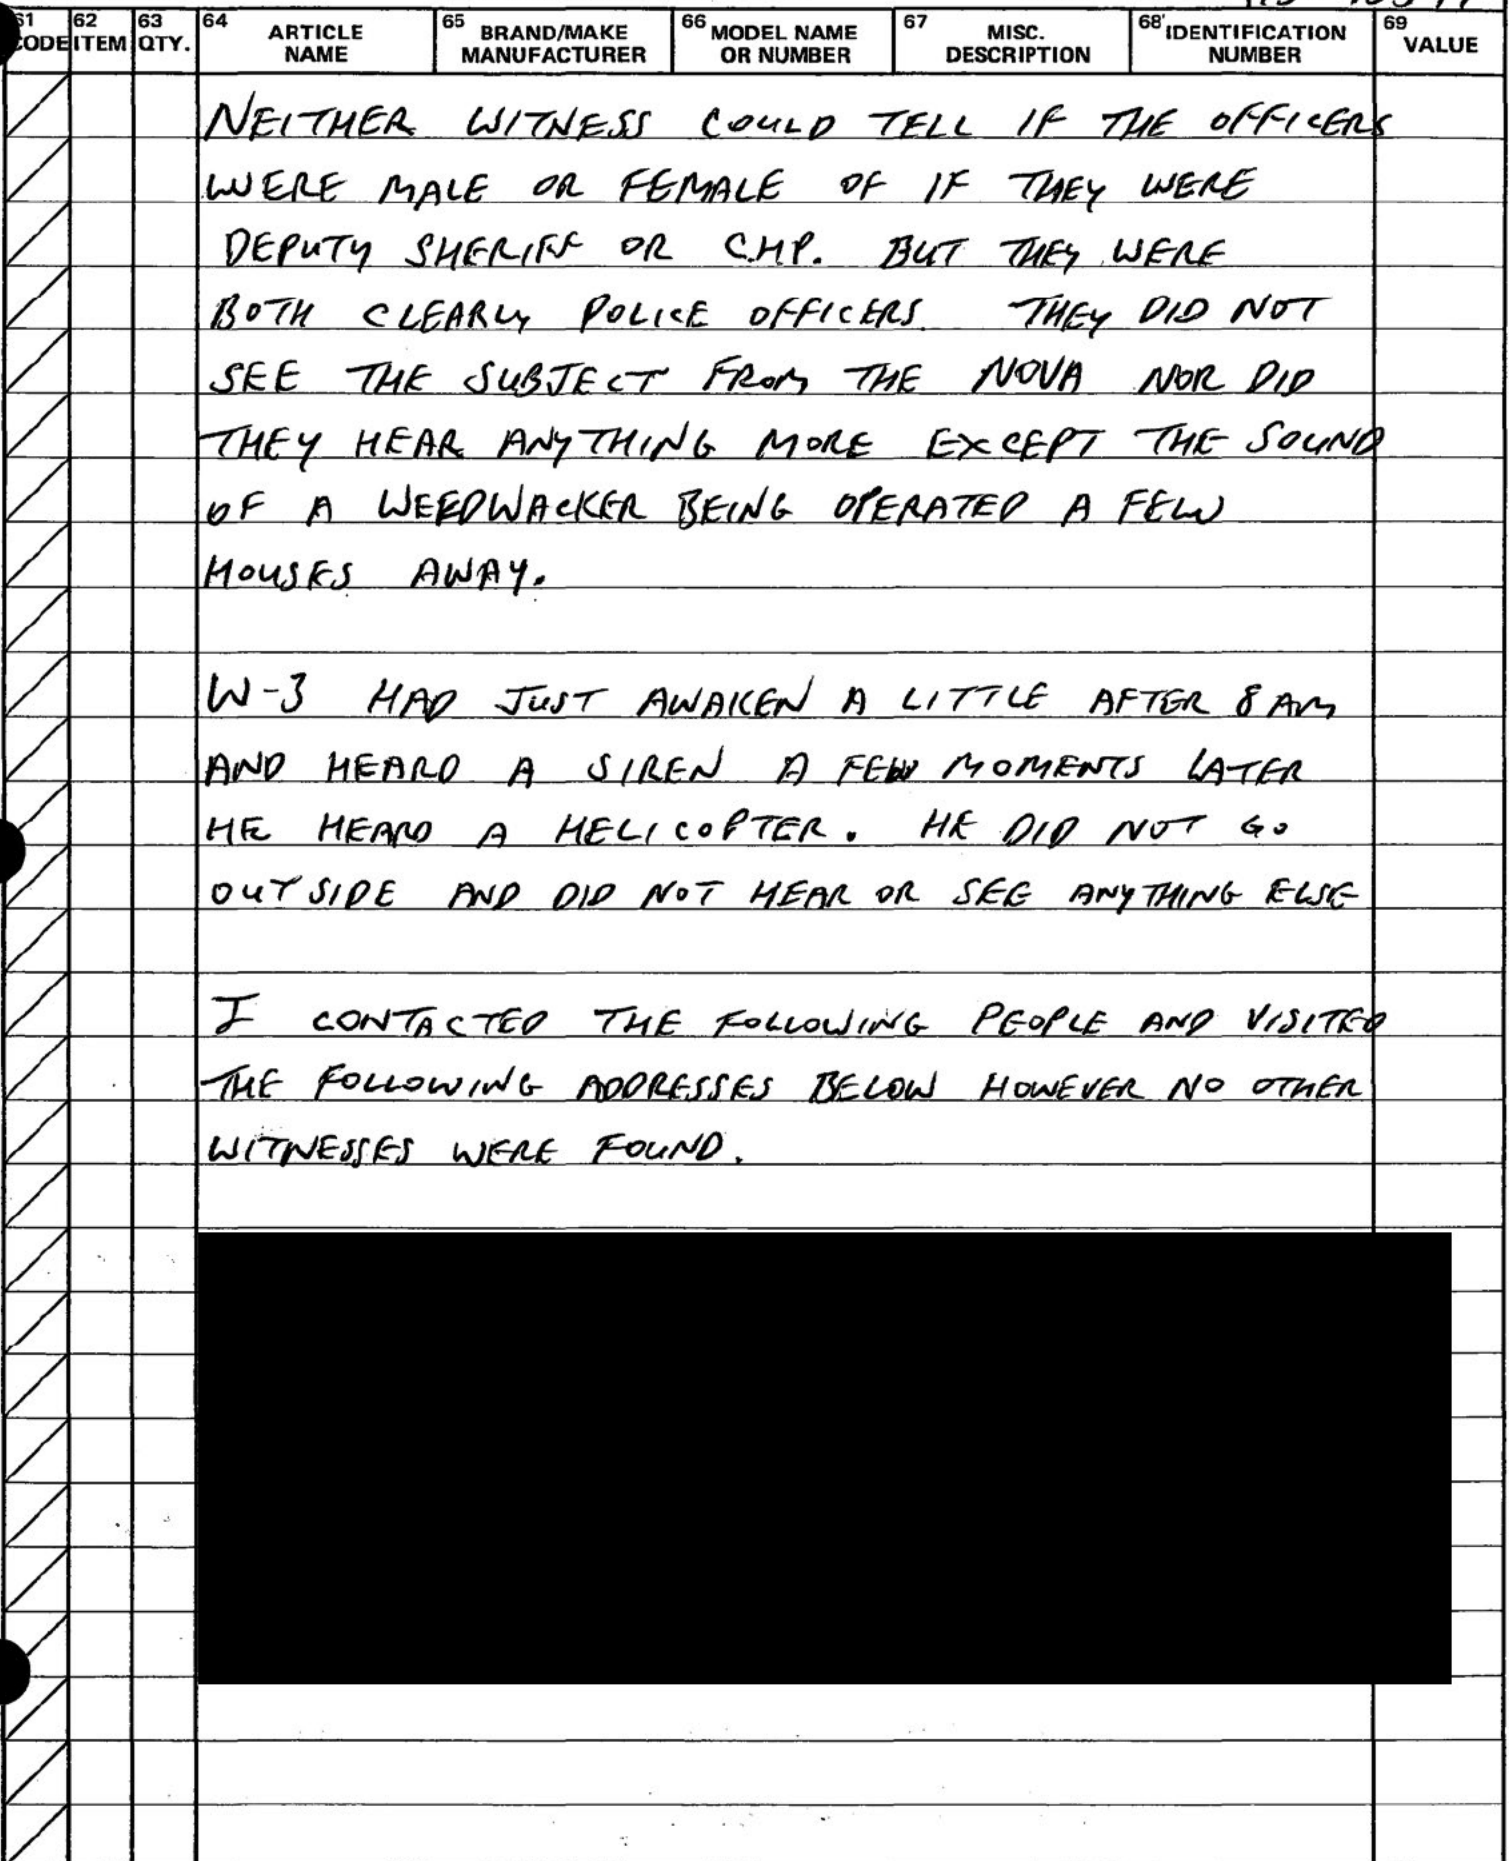 61 CODE 62 ITEM 63 QTY. 64 ARTICLE NAME 65 BRAND/MAKE MANUFACTURER 66 MODEL NAME OR NUMBER 67 MISC. DESCRIPTION 68 IDENTIFICATION NUMBER 69 VALUE
NEITHER WITNESS COULD TELL IF THE OFFICERS
WERE MALE OR FEMALE OF IF THEY WERE
DEPUTY SHERIFF OR C.H.P. BUT THEY WERE
BOTH CLEARLY POLICE OFFICERS. THEY DID NOT
SEE THE SUBJECT FROM THE NOVA NOR DID
THEY HEAR ANYTHING MORE EXCEPT THE SOUND
OF A WEEDWACKER BEING OPERATED A FEW
HOUSES AWAY.
W-3 HAD JUST AWAKEN A LITTLE AFTER 8 AM
AND HEARD A SIREN A FEW MOMENTS LATER
HE HEARD A HELICOPTER. HE DID NOT GO
OUTSIDE AND DID NOT HEAR OR SEE ANYTHING ELSE
I CONTACTED THE FOLLOWING PEOPLE AND VISITED
THE FOLLOWING ADDRESSES BELOW HOWEVER NO OTHER
WITNESSES WERE FOUND.